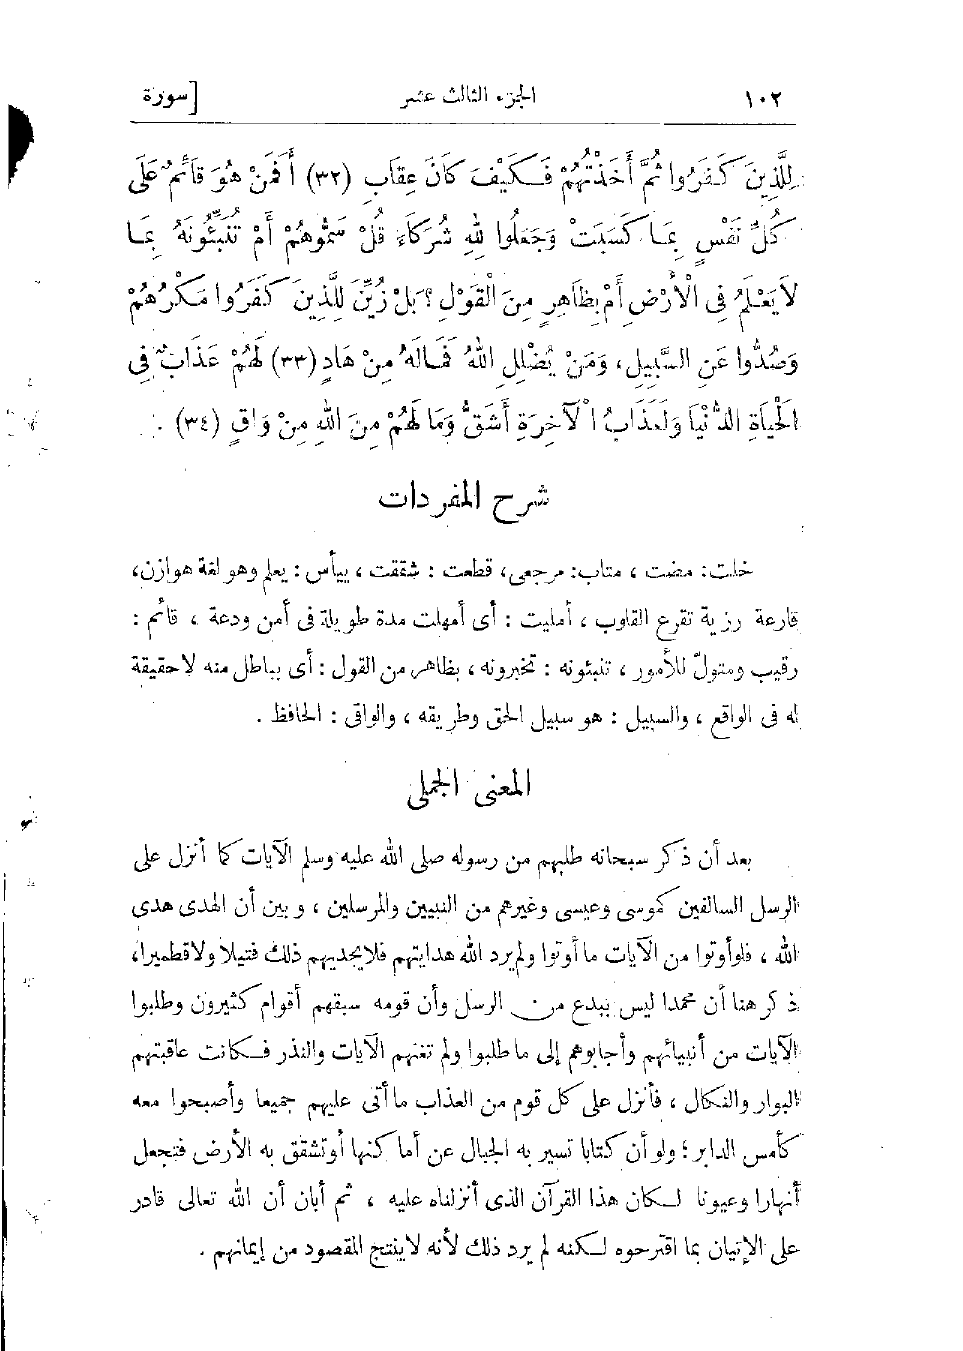 ١٠٢ الجزء الثالث عشر [سورة
لِلَّذِينَ كَفَرُوا ثُمَّ أَخَذْتُهُمْ فَكَيْفَ كَانَ عِقَابِ (٣٢) أَفَمَنْ هُوَ قَائِمٌ عَلَى
كُلِّ نَفْسٍ بِمَا كَسَبَتْ وَجَعَلُوا لِلهِ شُرَكَاءَ قُلْ سَمُّوهُمْ أَمْ تُنَبِّئُونَهُ بِمَا
لَا يَعْلَمُ فِى الْأَرْضِ أَمْ بِظَاهِرٍ مِنَ الْقَوْلِ؟ بَلْ زُيِّنَ لِلَّذِينَ كَفَرُوا مَكْرُهُمْ
وَصُدُّوا عَنِ السَّبِيلِ، وَمَنْ يُضْلِلِ اللهُ فَمَا لَهُ مِنْ هَادٍ (٣٣) لَهُمْ عَذَابٌ فِى
الْحَيَاةِ الدُّنْيَا وَلَعَذَابُ الْآخِرَةِ أَشَقُّ وَمَا لَهُمْ مِنَ اللهِ مِنْ وَاقٍ (٣٤) .
شرح المفردات
خلت: مضت ، متاب: مرجعى، قطعت : شققت ، ييأس : يعلم وهو لغة هوازن،
قارعة رزية تقرع القلوب ، أمليت : أى أمهلت مدة طويلة فى أمن ودعة ، قائم :
رقيب ومتولّ للأمور ، تنبئونه : تخبرونه ، بظاهر من القول : أى بباطل منه لا حقيقة
له فى الواقع ، والسبيل : هو سبيل الحق وطريقه ، والواقى : الحافظ .
المعنى الجملى
بعد أن ذكر سبحانه طلبهم من رسوله صلى الله عليه وسلم الآيات كما أنزل على
الرسل السالفين كموسى وعيسى وغيرهم من النبيين والمرسلين ، وبين أن الهدى هدى
الله ، فلو أوتوا من الآيات ما أوتوا ولم يرد الله هدايتهم فلا يجديهم ذلك فتيلا ولا قطميرا،
ذكر هنا أن محمدا ليس ببدع من الرسل وأن قومه سبقهم أقوام كثيرون وطلبوا
الآيات من أنبيائهم وأجابوهم إلى ما طلبوا ولم تغنهم الآيات والنذر فكانت عاقبتهم
البوار والنكال ، فأنزل على كل قوم من العذاب ما أتى عليهم جميعا وأصبحوا معه
كأمس الدابر ؛ ولو أن كتابا تسير به الجبال عن أماكنها أو تشقق به الأرض فتجعل
أنهارا وعيونا لكان هذا القرآن الذى أنزلناه عليه ، ثم أبان أن الله تعالى قادر
على الإتيان بما اقترحوه لكنه لم يرد ذلك لأنه لا ينتج المقصود من إيمانهم .